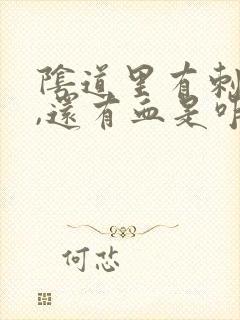 陰道里有刺
,還有血是咋
何恙